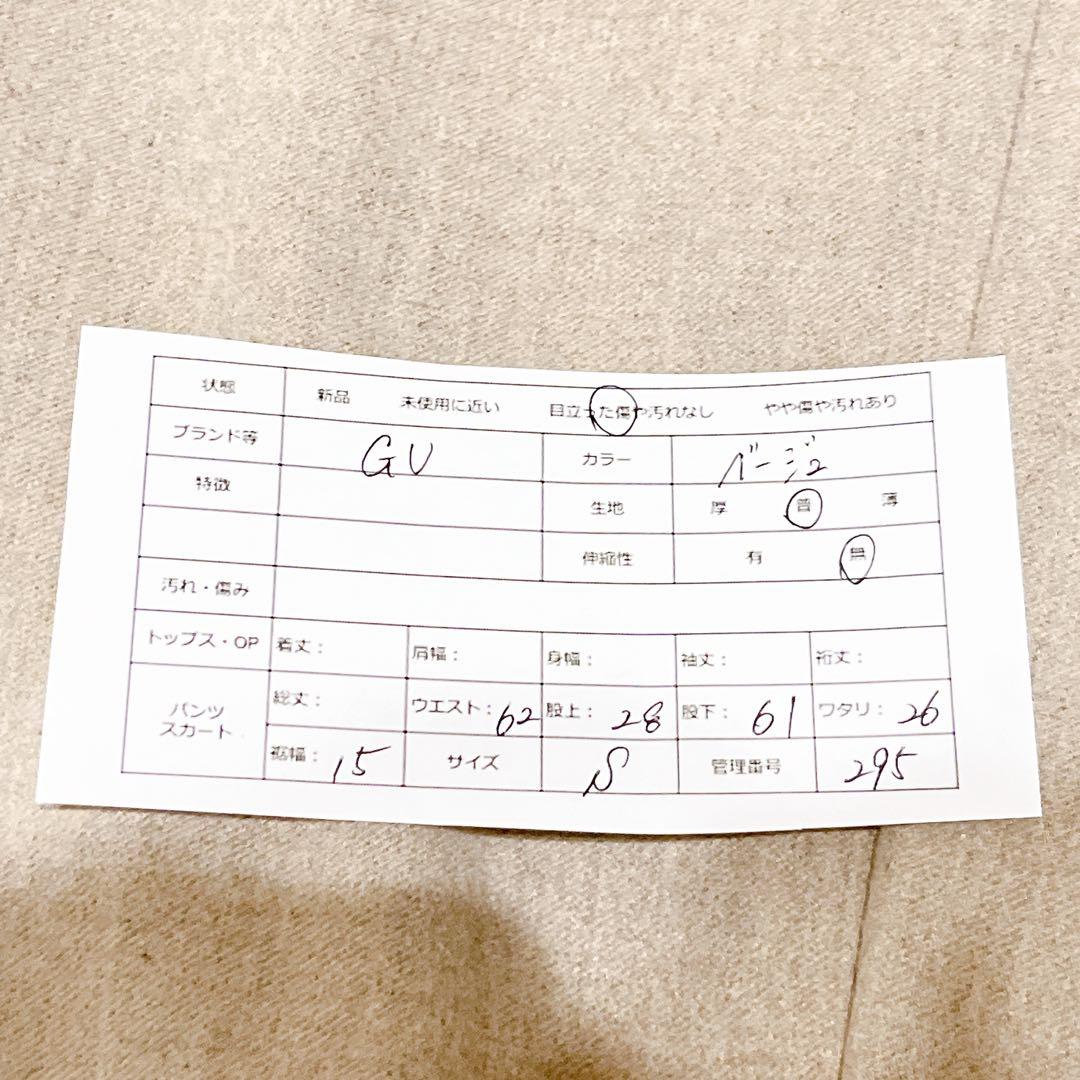 状態 新品 未使用に近い 目立った傷や汚れなし やや傷や汚れあり
ブランド等 GU カラー ベージュ
特徴 生地 厚 普 薄
伸縮性 有 無
汚れ・傷み
トップス・OP 着丈： 肩幅： 身幅： 袖丈： 裄丈：
パンツ スカート 総丈： ウエスト：62 股上：28 股下：61 ワタリ：26
裾幅：15 サイズ S 管理番号 295